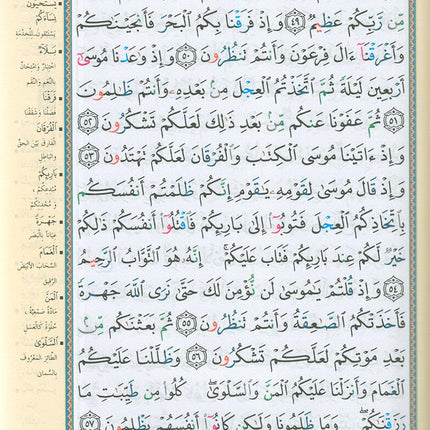 مِّن رَّبِّكُمْ عَظِيمٌ ٤٩ وَإِذْ فَرَقْنَا بِكُمُ ٱلْبَحْرَ فَأَنجَيْنَٰكُمْ
وَأَغْرَقْنَآ ءَالَ فِرْعَوْنَ وَأَنتُمْ تَنظُرُونَ ٥٠ وَإِذْ وَٰعَدْنَا مُوسَىٰٓ
أَرْبَعِينَ لَيْلَةً ثُمَّ ٱتَّخَذْتُمُ ٱلْعِجْلَ مِنۢ بَعْدِهِۦ وَأَنتُمْ ظَٰلِمُونَ
٥١ ثُمَّ عَفَوْنَا عَنكُم مِّنۢ بَعْدِ ذَٰلِكَ لَعَلَّكُمْ تَشْكُرُونَ ٥٢
وَإِذْ ءَاتَيْنَا مُوسَى ٱلْكِتَٰبَ وَٱلْفُرْقَانَ لَعَلَّكُمْ تَهْتَدُونَ ٥٣
وَإِذْ قَالَ مُوسَىٰ لِقَوْمِهِۦ يَٰقَوْمِ إِنَّكُمْ ظَلَمْتُمْ أَنفُسَكُم
بِٱتِّخَاذِكُمُ ٱلْعِجْلَ فَتُوبُوٓا۟ إِلَىٰ بَارِئِكُمْ فَٱقْتُلُوٓا۟ أَنفُسَكُمْ ذَٰلِكُمْ
خَيْرٌ لَّكُمْ عِندَ بَارِئِكُمْ فَتَابَ عَلَيْكُمْ ۚ إِنَّهُۥ هُوَ ٱلتَّوَّابُ ٱلرَّحِيمُ
٥٤ وَإِذْ قُلْتُمْ يَٰمُوسَىٰ لَن نُّؤْمِنَ لَكَ حَتَّىٰ نَرَى ٱللَّهَ جَهْرَةً
فَأَخَذَتْكُمُ ٱلصَّٰعِقَةُ وَأَنتُمْ تَنظُرُونَ ٥٥ ثُمَّ بَعَثْنَٰكُم مِّنۢ
بَعْدِ مَوْتِكُمْ لَعَلَّكُمْ تَشْكُرُونَ ٥٦ وَظَلَّلْنَا عَلَيْكُمُ
ٱلْغَمَامَ وَأَنزَلْنَا عَلَيْكُمُ ٱلْمَنَّ وَٱلسَّلْوَىٰ ۖ كُلُوا۟ مِن طَيِّبَٰتِ مَا
رَزَقْنَٰكُمْ ۖ وَمَا ظَلَمُونَا وَلَٰكِن كَانُوٓا۟ أَنفُسَهُمْ يَظْلِمُونَ ٥٧
يَسْتَحْيُونَ
نِسَاءَكُمْ
يَسْتَبْقُونَ لِلْخِدْمَةِ
بَلَاءٌ
اخْتِبَارٌ وَامْتِحَانٌ
بِالنِّعَمِ وَالنِّقَمِ
فَرَقْنَا
فَصَلْنَا وَشَقَقْنَا
الْفُرْقَانَ
الْفَارِقَ بَيْنَ الْحَقِّ
وَالْبَاطِلِ
بَارِئِكُمْ
مُبْدِعِكُمْ
وَمُحْدِثِكُمْ
جَهْرَةً
عِيَانًا بِالْبَصَرِ
الْغَمَامَ
السَّحَابَ الْأَبْيَضَ
الرَّقِيقَ
الْمَنَّ
مَادَّةٌ صَمْغِيَّةٌ
حُلْوَةٌ كَالْعَسَلِ
السَّلْوَىٰ
الطَّائِرَ الْمَعْرُوفَ
بِالسُّمَانَى